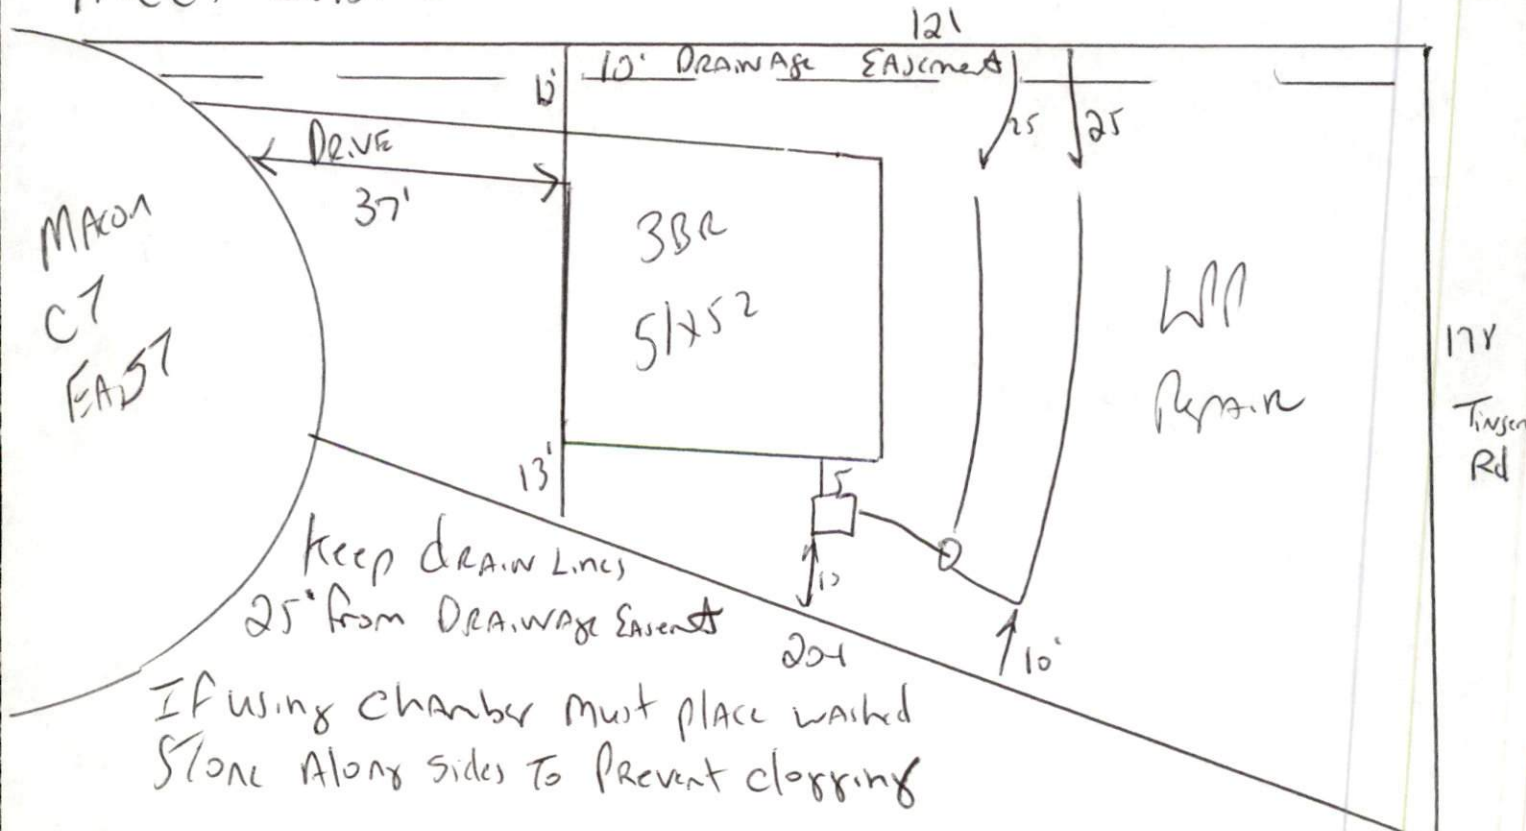 121
10' DRAINAGE EASEMENT
10'
25
25
DRIVE
37'
MACON
CT
EAST
3BR
51x52
LPP
Repair
178
Rd
13'
5
10
Keep DRAIN Lines
25' from DRAINAGE Easement
204
10'
If using chamber must place washed
STone Along sides To Prevent clogging